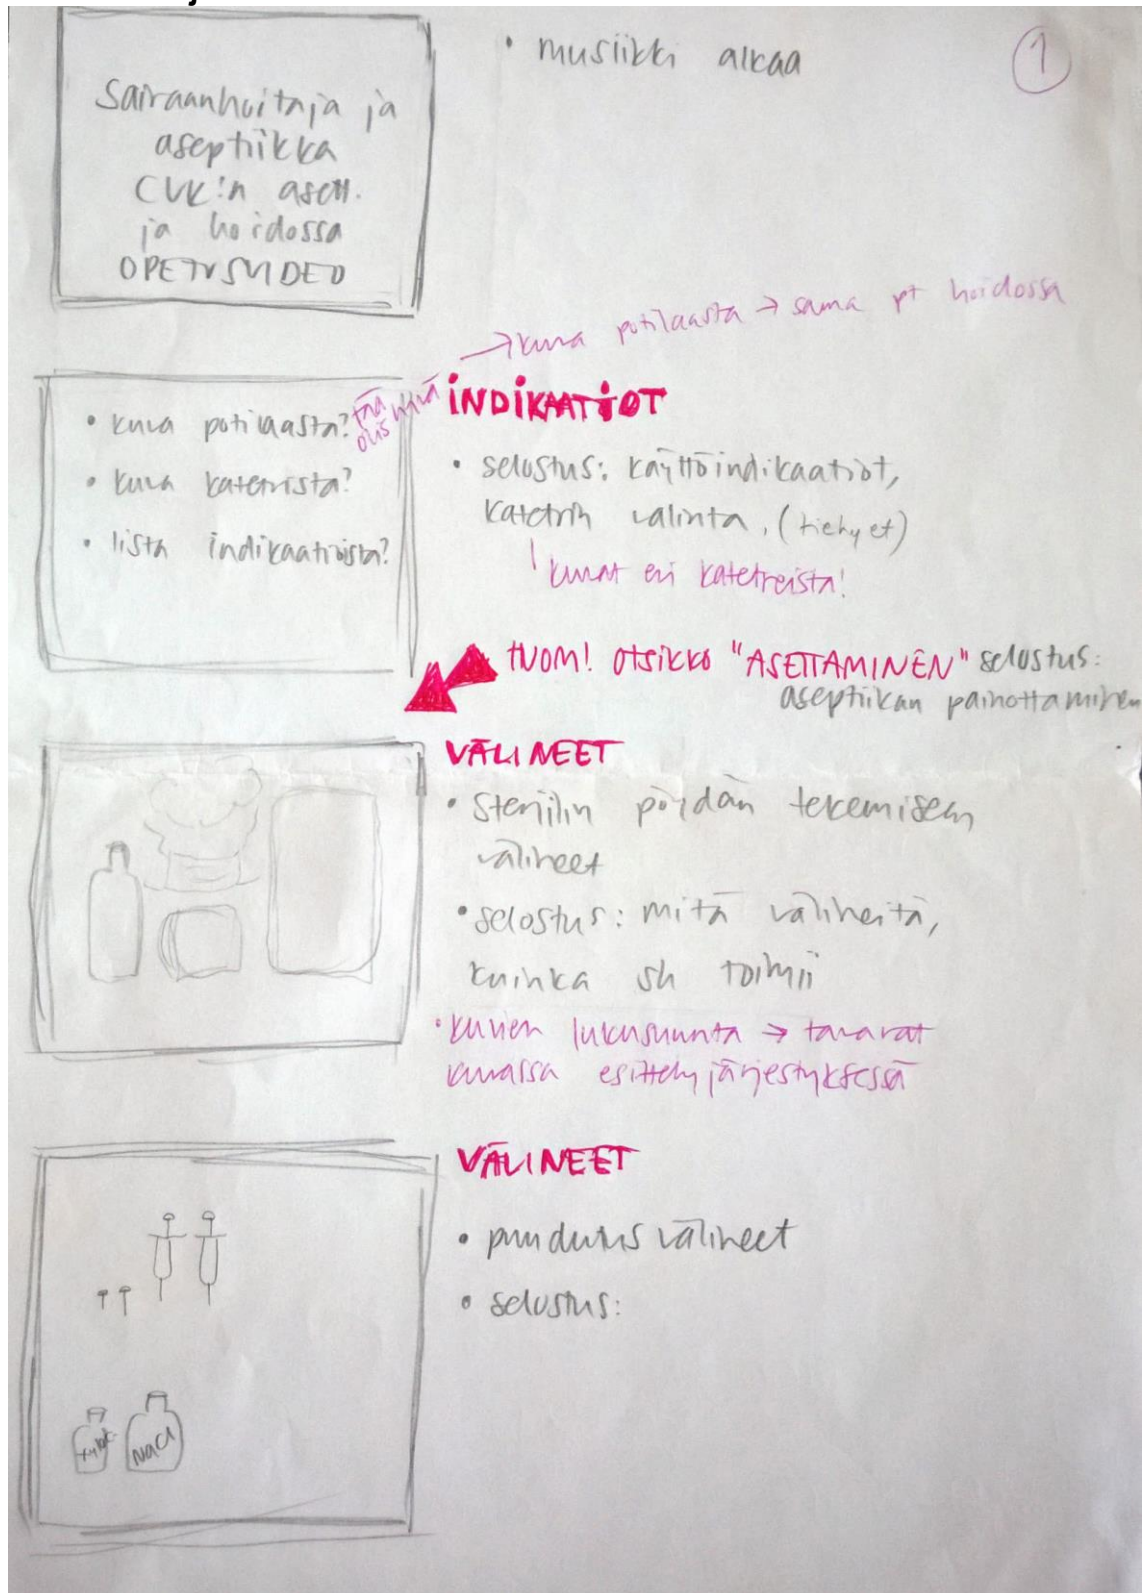 • musiikki alkaa
1
Sairaanhoitaja ja
aseptiikka
CVK:n asett.
ja hoidossa
OPETUSVIDEO
→ kuva potilaasta → sama pt hoidossa
• kuva potilaasta?
tää olis hyvä
• kuva katetrista?
• lista indikaatioista?
INDIKAATIOT
• selostus: käyttöindikaatiot,
katetrin valinta, (tiehyet)
kuvat eri katetreista!
HUOM! OTSIKKO "ASETTAMINEN" selostus:
aseptiikan painottaminen
VÄLINEET
• steriilin pöydän tekemisen
välineet
• selostus: mitä välineitä,
kuinka sh toimii
• kuvien lukusuunta → tavarat
kuvassa esittelyjärjestyksessä
VÄLINEET
• puudutusvälineet
• selostus:
NaCl